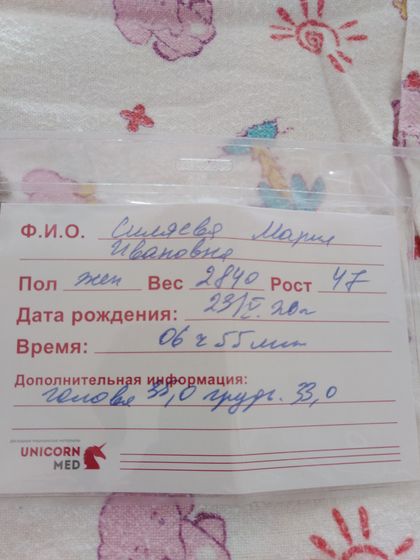 Ф.И.О. Силяева Мария
Ивановна
Пол жен Вес 2840 Рост 47
Дата рождения: 23/V. 20г
Время: 06 ч 55 мин
Дополнительная информация:
голова 33,0 грудь. 33,0
UNICORN
MED